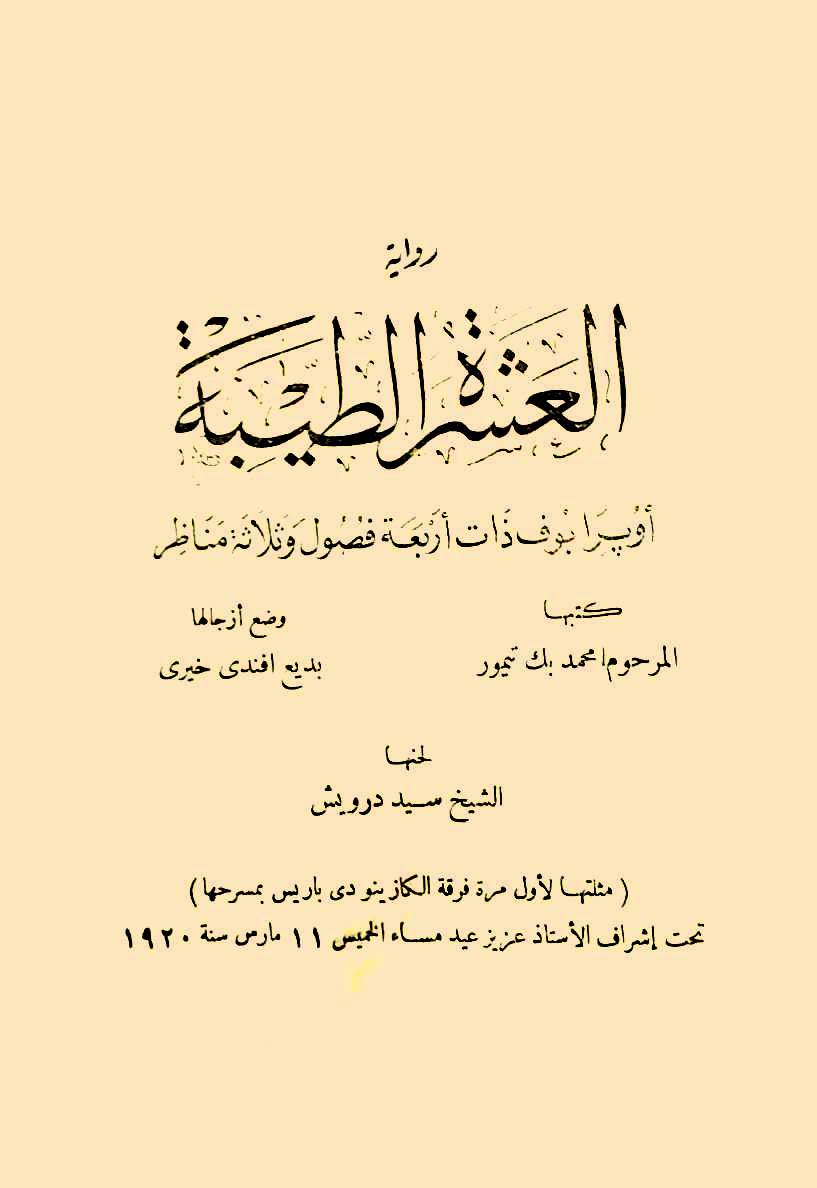 رواية
العشرة الطيبة
أوْپِرَا بُوف ذَات أَرْبَعَة فُصُول وَثَلَاثَة مَنَاظِر
كتبها
وضع أزجالها
المرحوم محمد بك تيمور
بديع افندى خيرى
لحنها
الشيخ سيد درويش
( مثلتها لأول مرة فرقة الكازينو دى باريس بمسرحها )
تحت إشراف الأستاذ عزيز عيد مساء الخميس ١١ مارس سنة ١٩٢٠